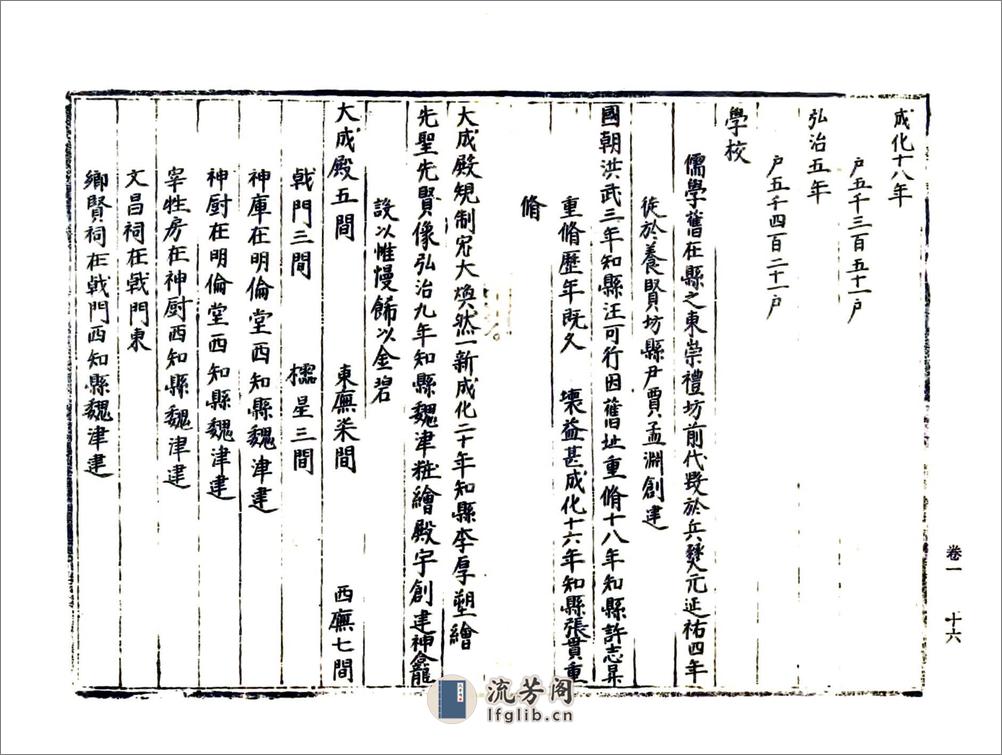 成化十八年
戶五千三百五十一戶
弘治五年
戶五千四百二十一戶
學校
儒學舊在縣之東崇禮坊前代燬於兵燹元延祐四年
徙於養賢坊縣尹賈孟淵創建
國朝洪武三年知縣汪可行因舊址重脩十八年知縣許志昇
重脩歷年既久 壞益甚成化十六年知縣張貫重
脩
大成殿規制宏大煥然一新成化二十年知縣李厚塑繪
先聖先賢像弘治九年知縣魏津粧繪殿宇創建神龕
設以帷幔餙以金碧
大成殿五間 東廡柒間 西廡七間
戟門三間 櫺星三間
神庫在明倫堂西知縣魏津建
神厨在明倫堂西知縣魏津建
宰牲房在神厨西知縣魏津建
文昌祠在戟門東
鄉賢祠在戟門西知縣魏津建
卷一 十六
流芳阁
lfglib.cn